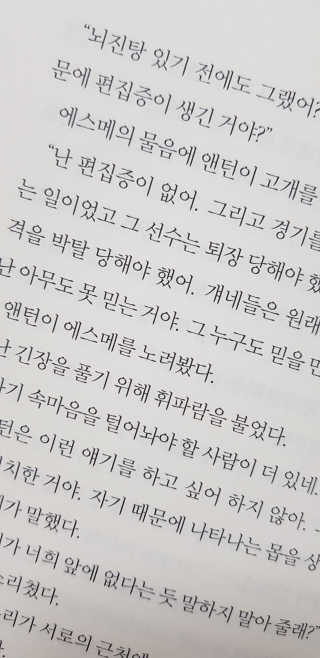 “뇌진탕 있기 전에도 그랬어?
문에 편집증이 생긴 거야?”
에스메의 물음에 앤턴이 고개를
“난 편집증이 없어. 그리고 경기를
는 일이었고 그 선수는 퇴장 당해야 했
격을 박탈 당해야 했어. 걔네들은 원래
난 아무도 못 믿는 거야. 그 누구도 믿을 만
앤턴이 에스메를 노려봤다.
난 긴장을 풀기 위해 휘파람을 불었다.
자기 속마음을 털어놔야 할 사람이 더 있네.
턴은 이런 얘기를 하고 싶어 하지 않아.
치한 거야. 자기 때문에 나타나는 몹을 상
가 말했다.
가 너희 앞에 없다는 듯 말하지 말아 줄래?”
소리쳤다.
리가 서로의 근처에